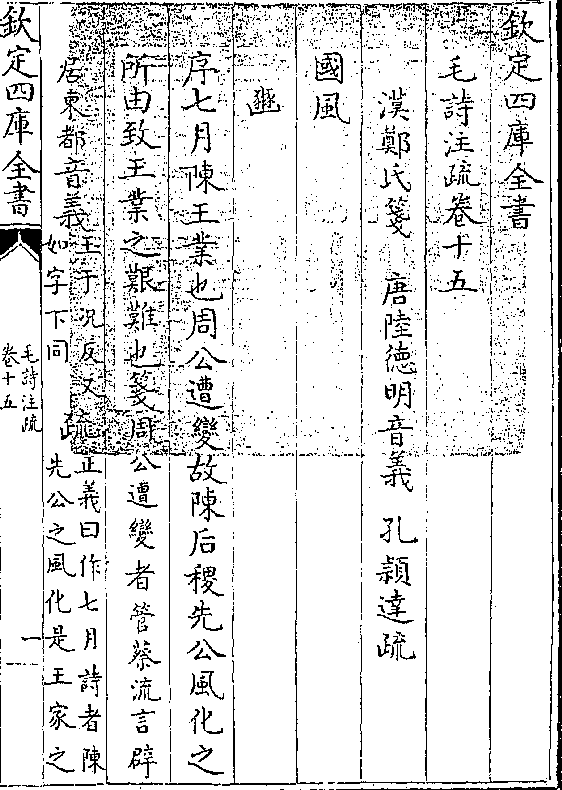 欽定四庫全書
毛詩注疏卷十五
漢鄭氏箋 唐陸德明音義 孔穎達疏
國風
豳
序七月陳王業也周公遭變故陳后稷先公風化之
所由致王業之艱難也箋周公遭變者管蔡流言辟
居東都音義王于况反又
如字下同
疏正義曰作七月詩者陳
先公之風化是王家之
欽定四庫全書
毛詩注疏
卷十五
一